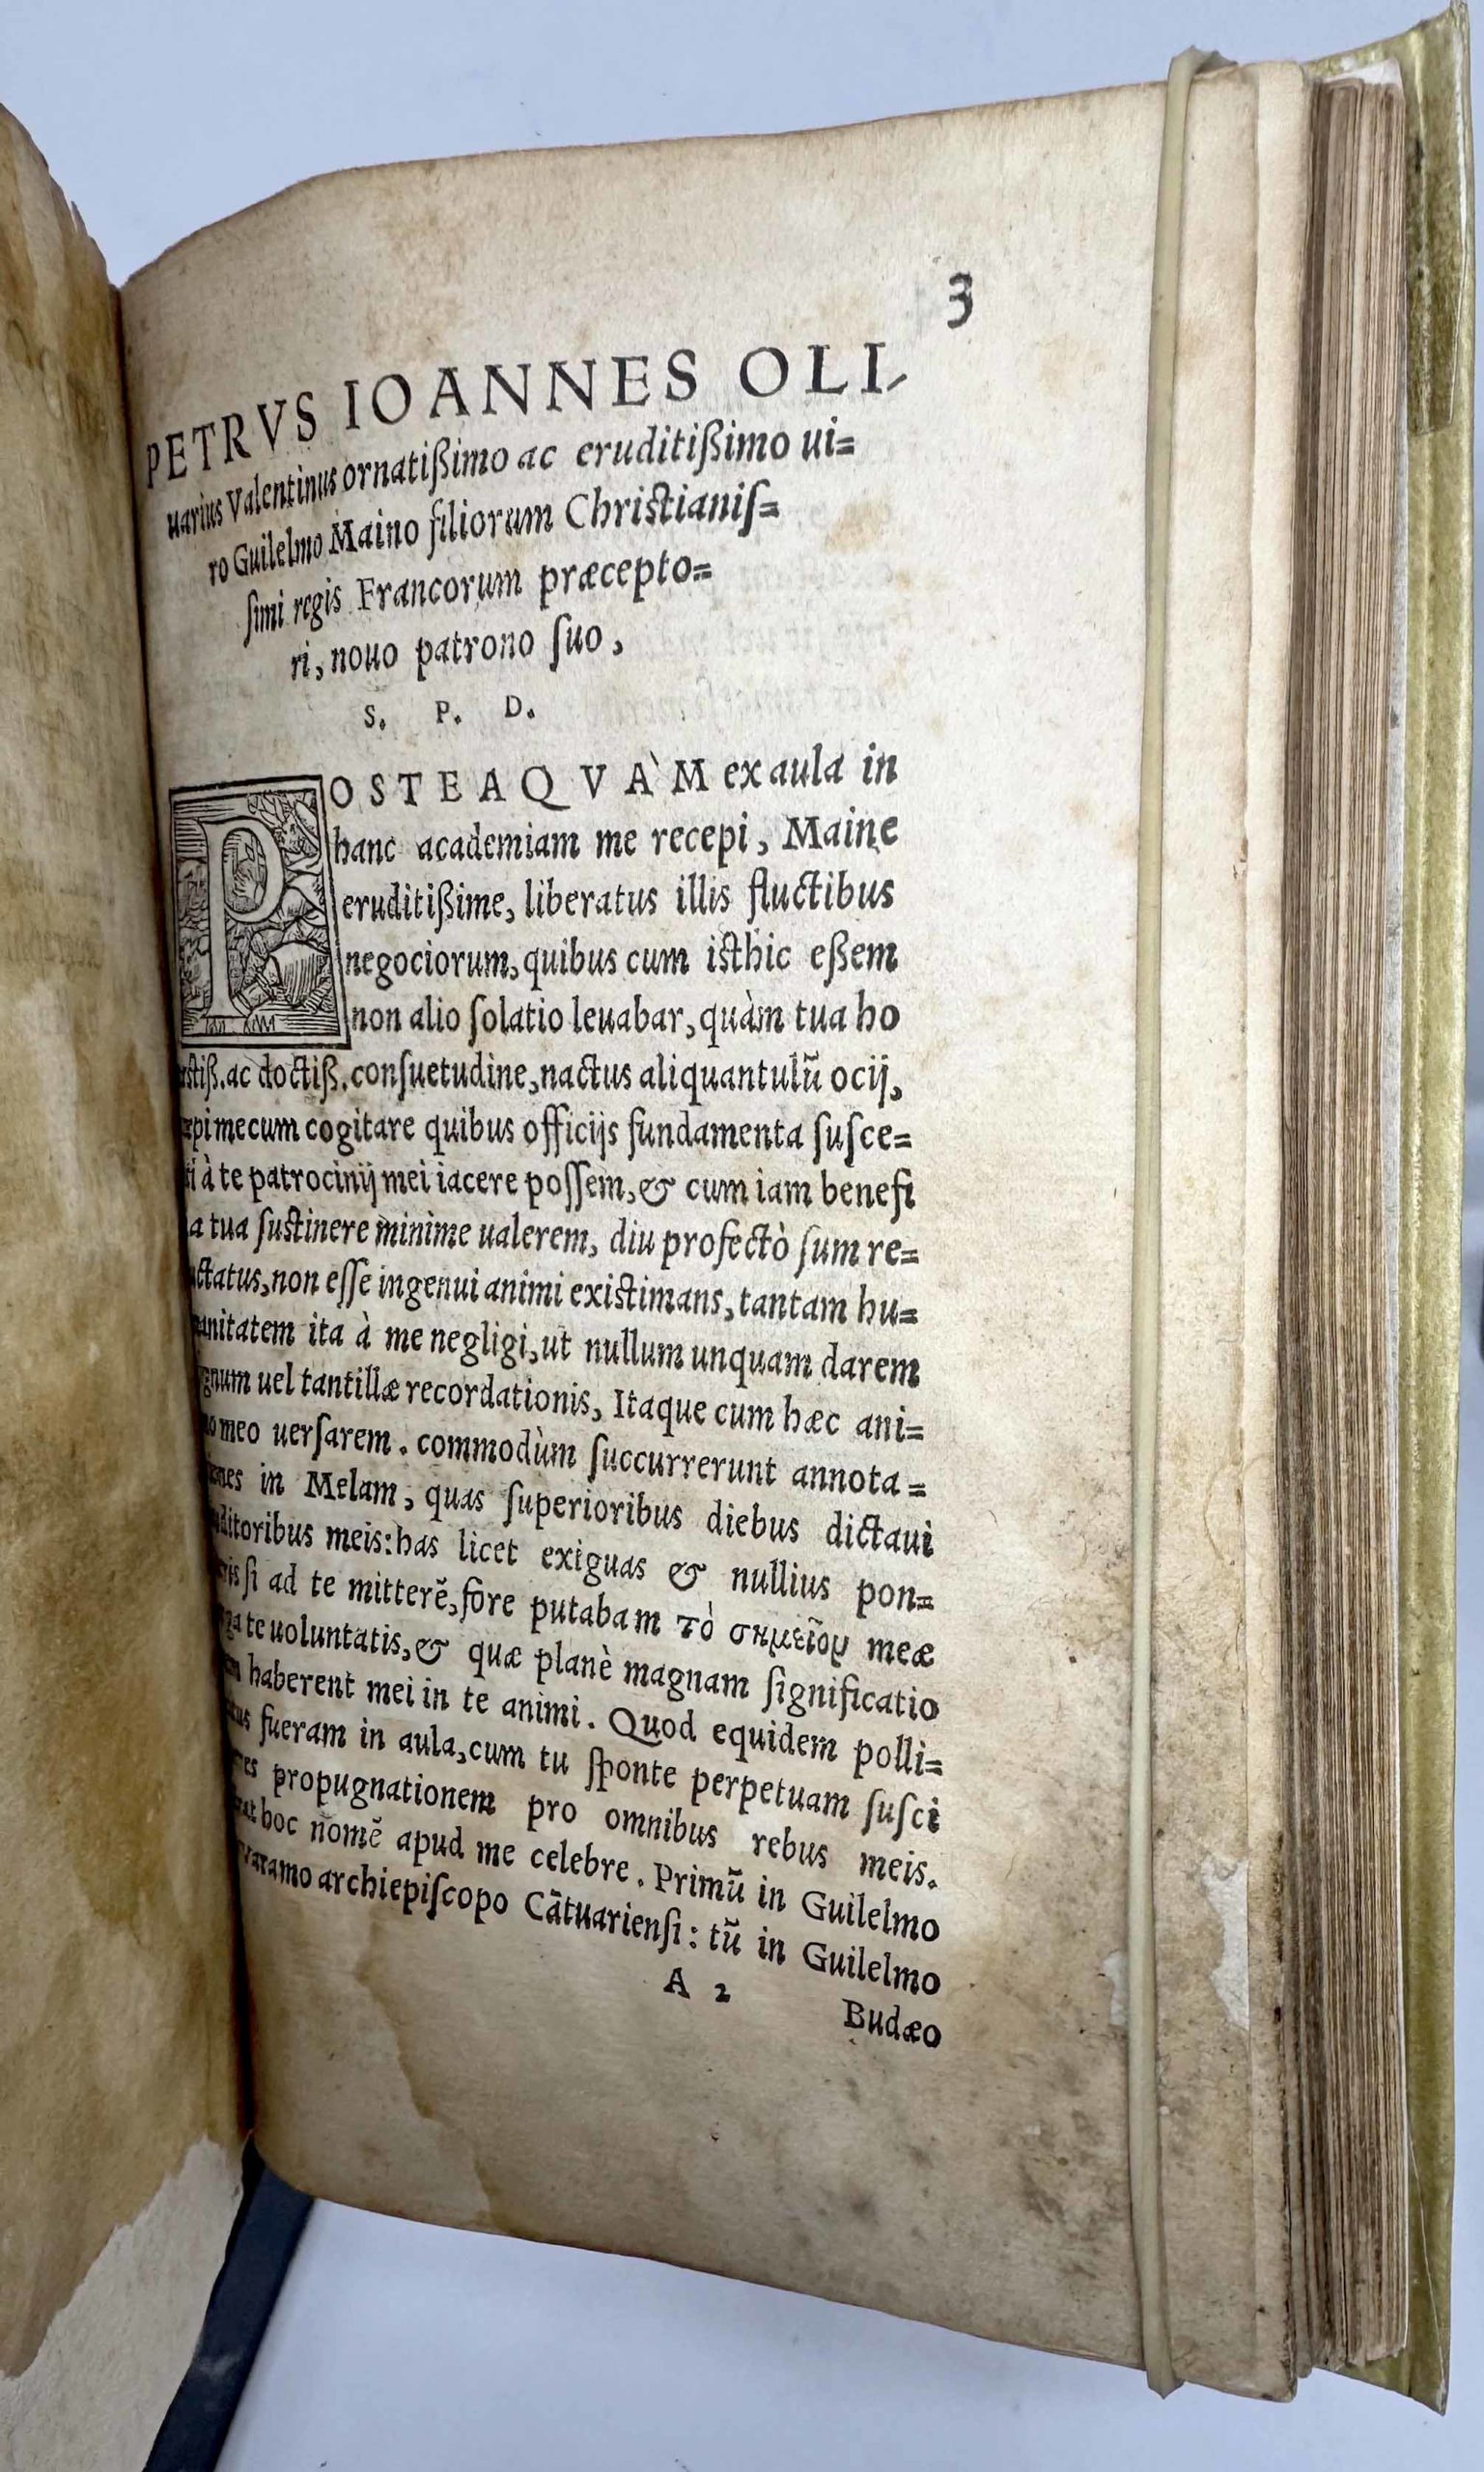 3
PETRVS IOANNES OLI-
uarius Valentinus ornatißimo ac eruditißimo ui=
ro Guilelmo Maino filiorum Christianiſ=
ſimi regis Francorum præcepto=
ri, nouo patrono ſuo,
S. P. D.
POSTEAQVÀM ex aula in
hanc academiam me recepi, Maine
eruditißime, liberatus illis fluctibus
negociorum, quibus cum isthic eßem
non alio ſolatio leuabar, quàm tua ho
ac doctiß. conſuetudine, nactus aliquantulũ ocij,
mecum cogitare quibus officijs fundamenta ſuſce=
à te patrocinij mei iacere poſſem, & cum iam benefi
tua ſustinere minime ualerem, diu profectò ſum re=
non eſſe ingenui animi existimans, tantam hu=
ita à me negligi, ut nullum unquam darem
uel tantillæ recordationis, Itaque cum hæc ani=
meo uerſarem. commodùm ſuccurrerunt annota=
in Melam, quas ſuperioribus diebus dictaui
meis: has licet exiguas & nullius pon=
ſi ad te mitterẽ, fore putabam τὸ σημεῖον meæ
te uoluntatis, & quæ planè magnam ſignificatio
haberent mei in te animi. Quod equidem polli=
fueram in aula, cum tu ſponte perpetuam ſuſci
propugnationem pro omnibus rebus meis.
hoc nomẽ apud me celebre. Primũ in Guilelmo
archiepiſcopo Cãtuarienſi: tũ in Guilelmo
A 2
Budæo